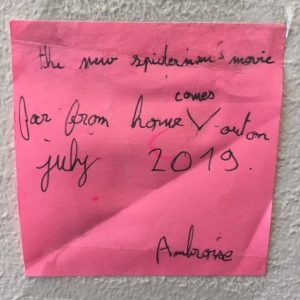 the new spiderman's movie
far from home comes out on
july 2019.
Ambroise